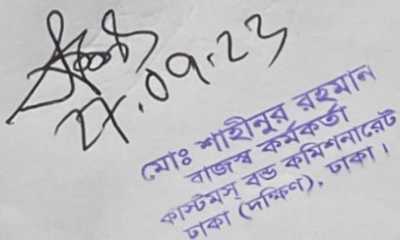 27.09.23
মোঃ শাহীনুর রহমান
রাজস্ব কর্মকর্তা
কাস্টমস্ বন্ড কমিশনারেট
ঢাকা (দক্ষিণ), ঢাকা।